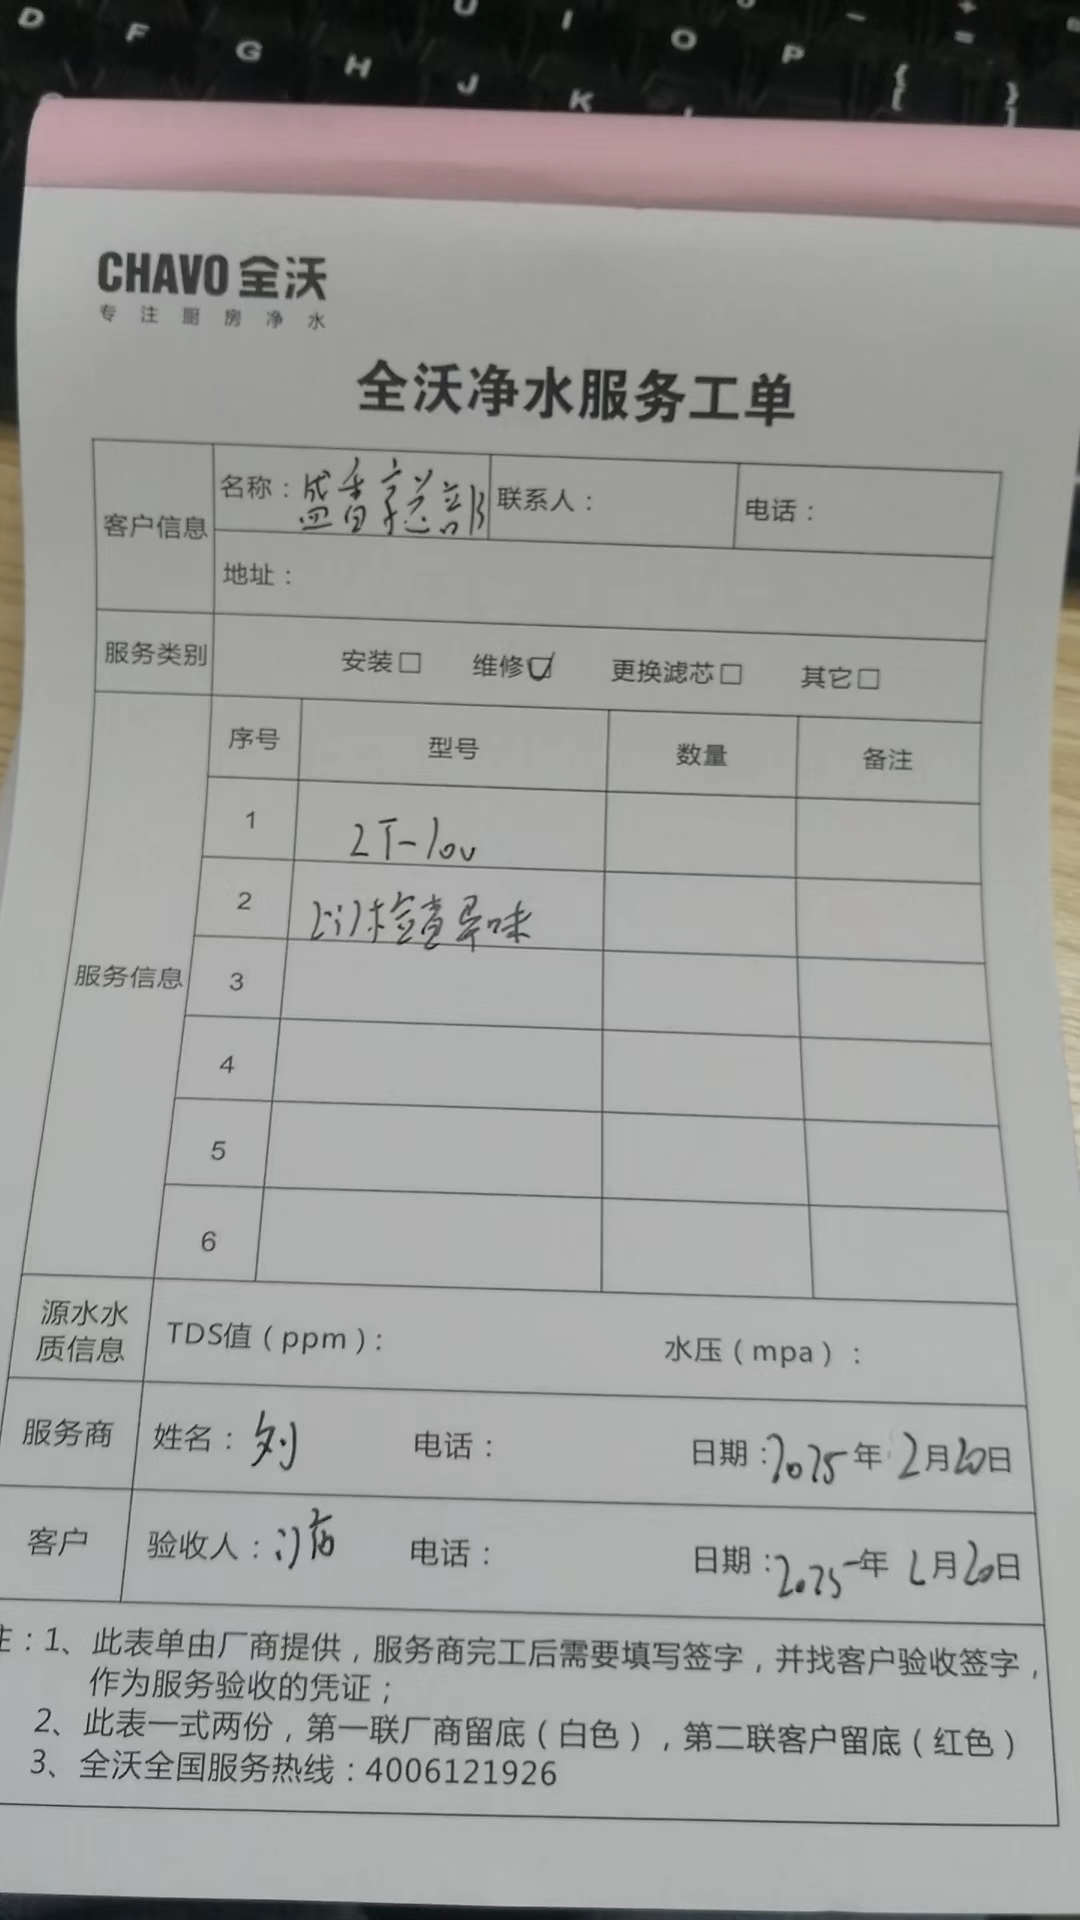 D F G H J K U I O P { [ } ] - + =
CHAVO 全沃
专注厨房净水
全沃净水服务工单
客户信息 名称：盛香亭总部 联系人： 电话：
地址：
服务类别 安装□ 维修☑ 更换滤芯□ 其它□
服务信息
序号 型号 数量 备注
1 2T-10u
2 上门检查异味
3
4
5
6
源水水质信息 TDS值（ppm）： 水压（mpa）：
服务商 姓名：刘 电话： 日期：2025年2月20日
客户 验收人： 电话： 日期：2025年2月20日
注：1、此表单由厂商提供，服务商完工后需要填写签字，并找客户验收签字，
作为服务验收的凭证；
2、此表一式两份，第一联厂商留底（白色），第二联客户留底（红色）
3、全沃全国服务热线：4006121926